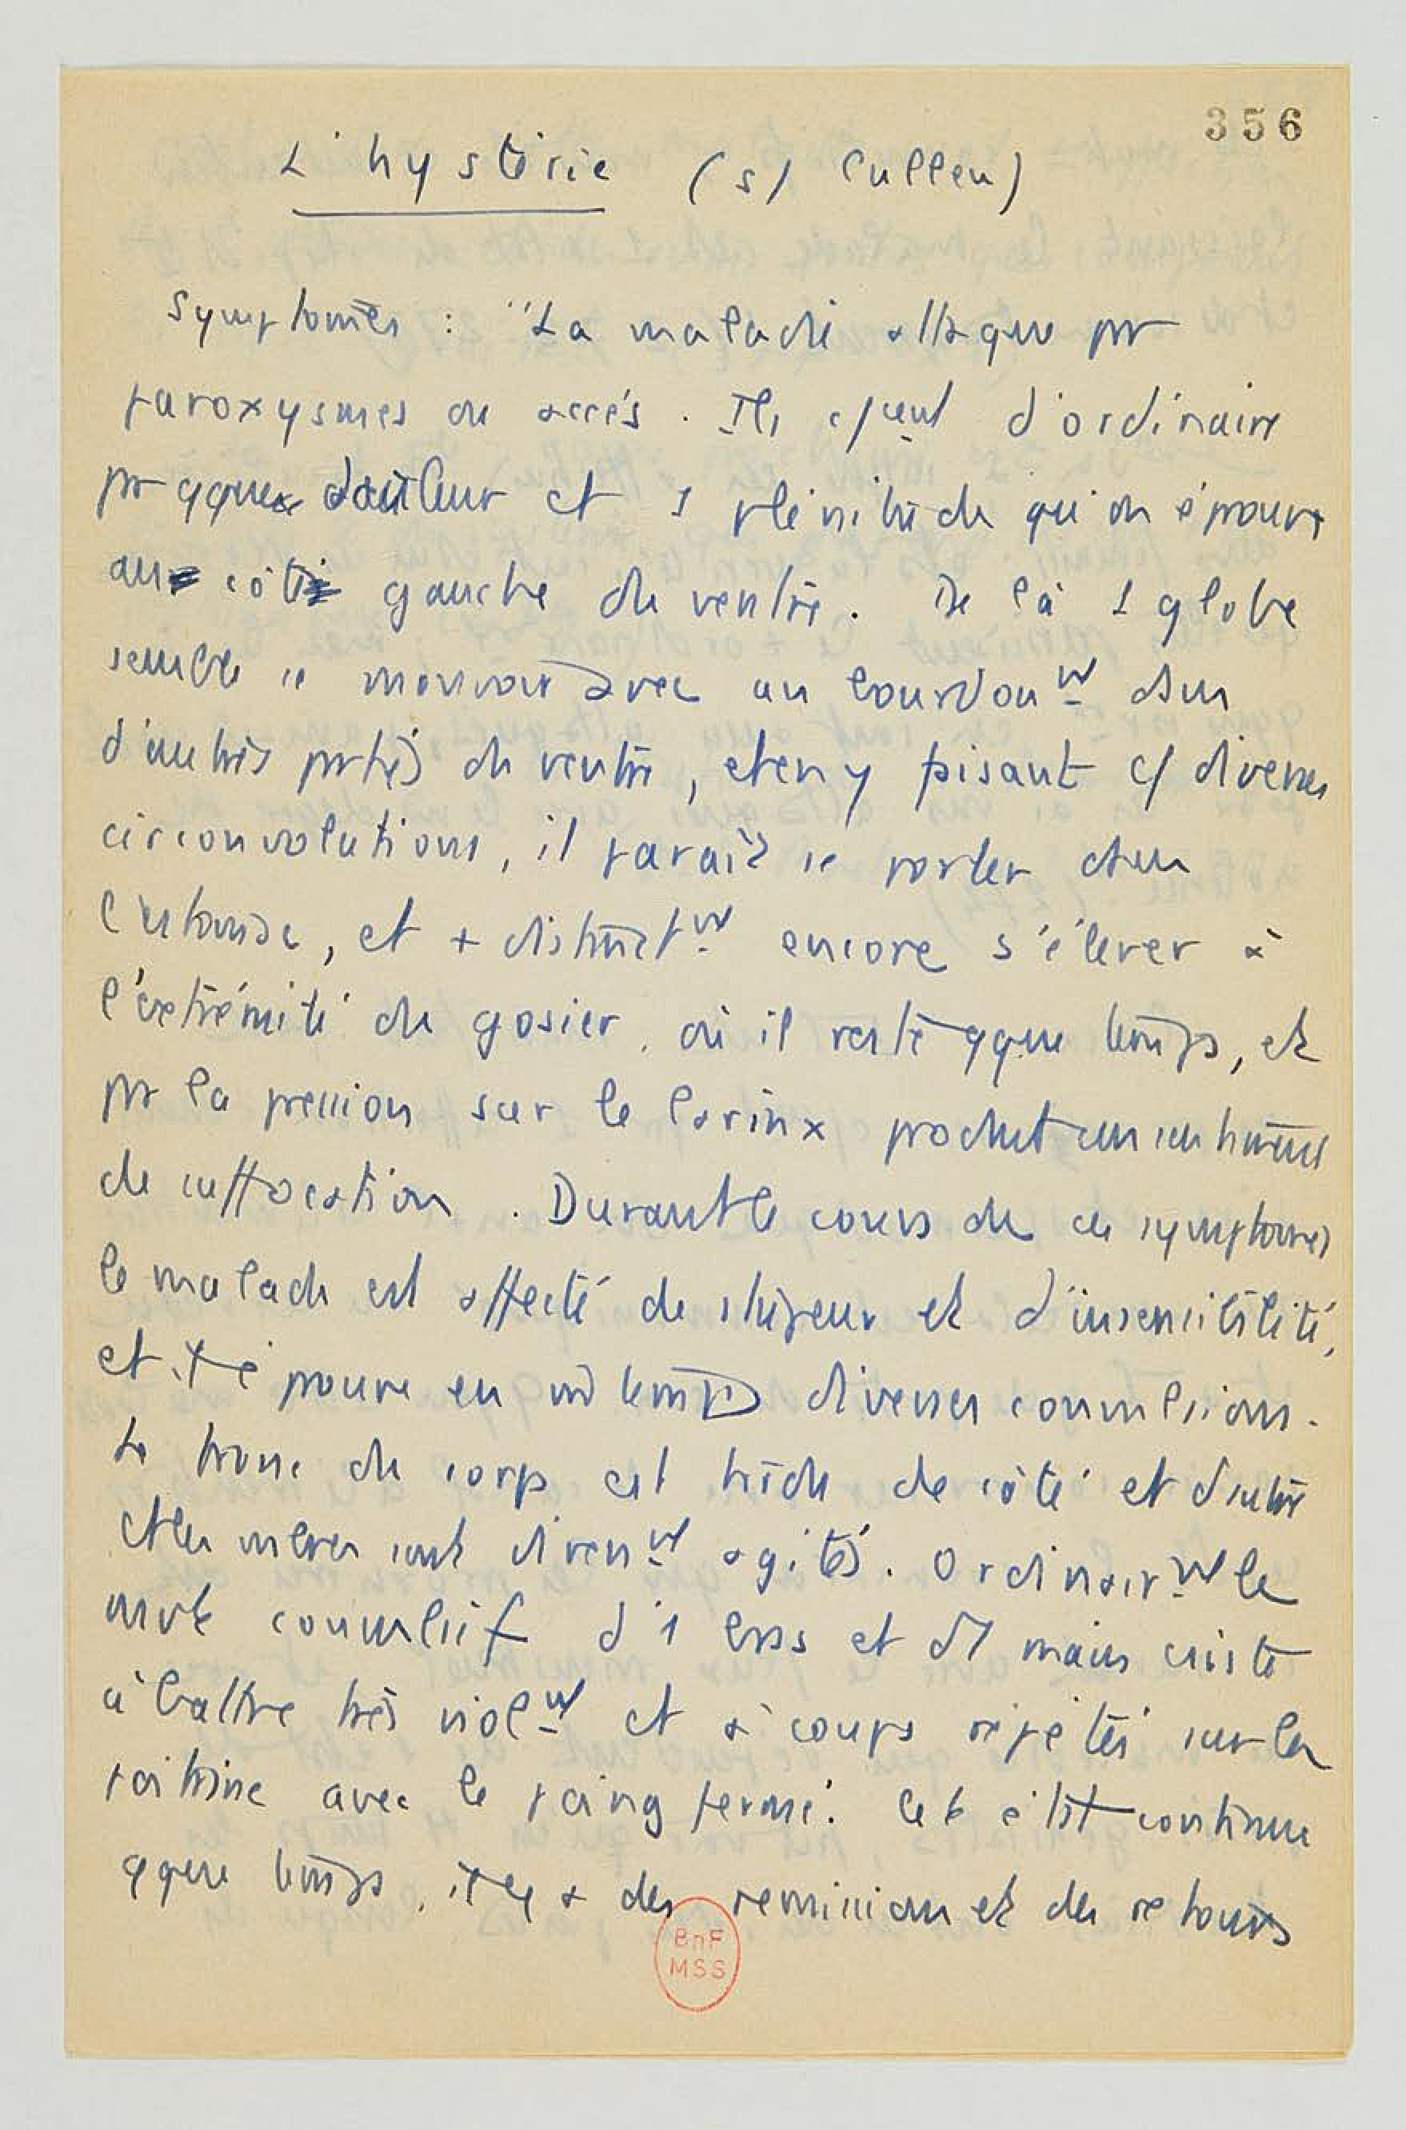 356
L'hystérie (s/ Cullen)
Symptômes : "La maladie attaque pr
paroxysmes ou accés. Ils c/cent d'ordinaire
pr qque douleur et 1 plénitude qu'on éprouve
au côté gauche du ventre. De là 1 globe
semble se mouvoir avec un bourdonnt dans
d'autres parties du ventre, et en y faisant c/ diverses
circonvolutions, il parait se porter dans
l'estomac, et + distinctt encore s'élever à
l'extrémité du gosier, où il reste qque temps, et
pr la pression sur le larinx produit un sentiment
de suffocation. Durant le cours de ces symptomes
le malade est affecté de stupeur et d'insensibilité,
et il éprouve en m temps diverses convulsions.
Le tronc du corps est tordu de côté et d'autre
et les membres sont diverst agités. Ordinairt le
mvt convulsif d'1 bras et d'1 main consiste
à battre très violt et à coups répétés sur la
poitrine avec le poing fermé. Cet état continue
qque temps, il y a des remissions et des retours
BnF
MSS